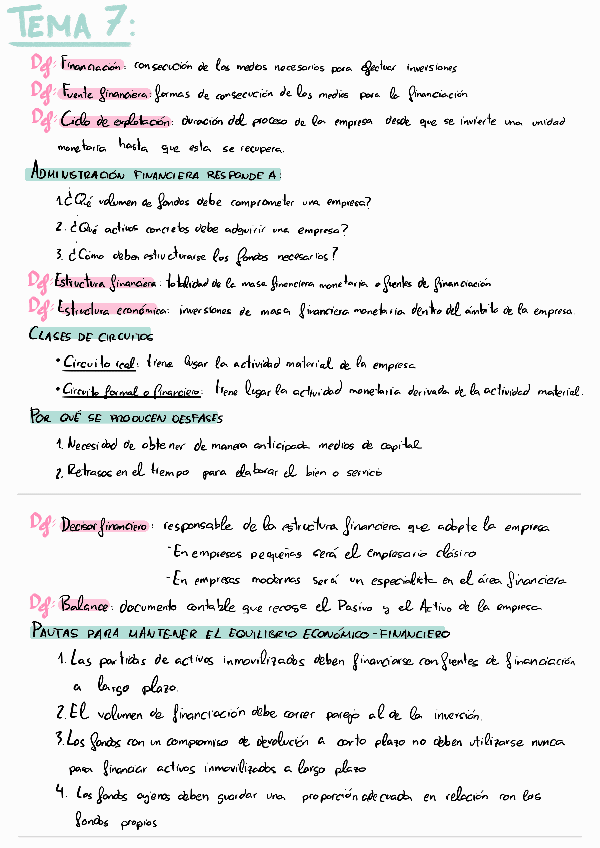 TEMA 7:
Df: Financiación: consecución de los medios necesarios para efectuar inversiones
Df: Fuente financiera: formas de consecución de los medios para la financiación
Df: Ciclo de explotación: duración del proceso de la empresa desde que se invierte una unidad
monetaria hasta que esta se recupera.
ADMINISTRACIÓN FINANCIERA RESPONDE A:
1. ¿Qué volumen de fondos debe comprometer una empresa?
2. ¿Qué activos concretos debe adquirir una empresa?
3. ¿Cómo deben estructurarse los fondos necesarios?
Df: Estructura financiera: totalidad de la masa financiera monetaria o fuentes de financiación
Df: Estructura económica: inversiones de masa financiera monetaria dentro del ámbito de la empresa
CLASES DE CIRCUITOS
• Circuito real: tiene lugar la actividad material de la empresa
• Circuito formal o financiero: tiene lugar la actividad monetaria derivada de la actividad material.
POR QUÉ SE PRODUCEN DESFASES
1. Necesidad de obtener de manera anticipada medios de capital
2. Retrasos en el tiempo para elaborar el bien o servicio
Df: Decisor financiero: responsable de la estructura financiera que adopte la empresa
- En empresas pequeñas será el empresario clásico
- En empresas modernas será un especialista en el área financiera
Df: Balance: documento contable que recoge el Pasivo y el Activo de la empresa
PAUTAS PARA MANTENER EL EQUILIBRIO ECONÓMICO-FINANCIERO
1. Las partidas de activos inmovilizados deben financiarse con fuentes de financiación
a largo plazo.
2. El volumen de financiación debe correr parejo al de la inversión.
3. Los fondos con un compromiso de devolución a corto plazo no deben utilizarse nunca
para financiar activos inmovilizados a largo plazo
4. Los fondos ajenos deben guardar una proporción adecuada en relación con los
fondos propios